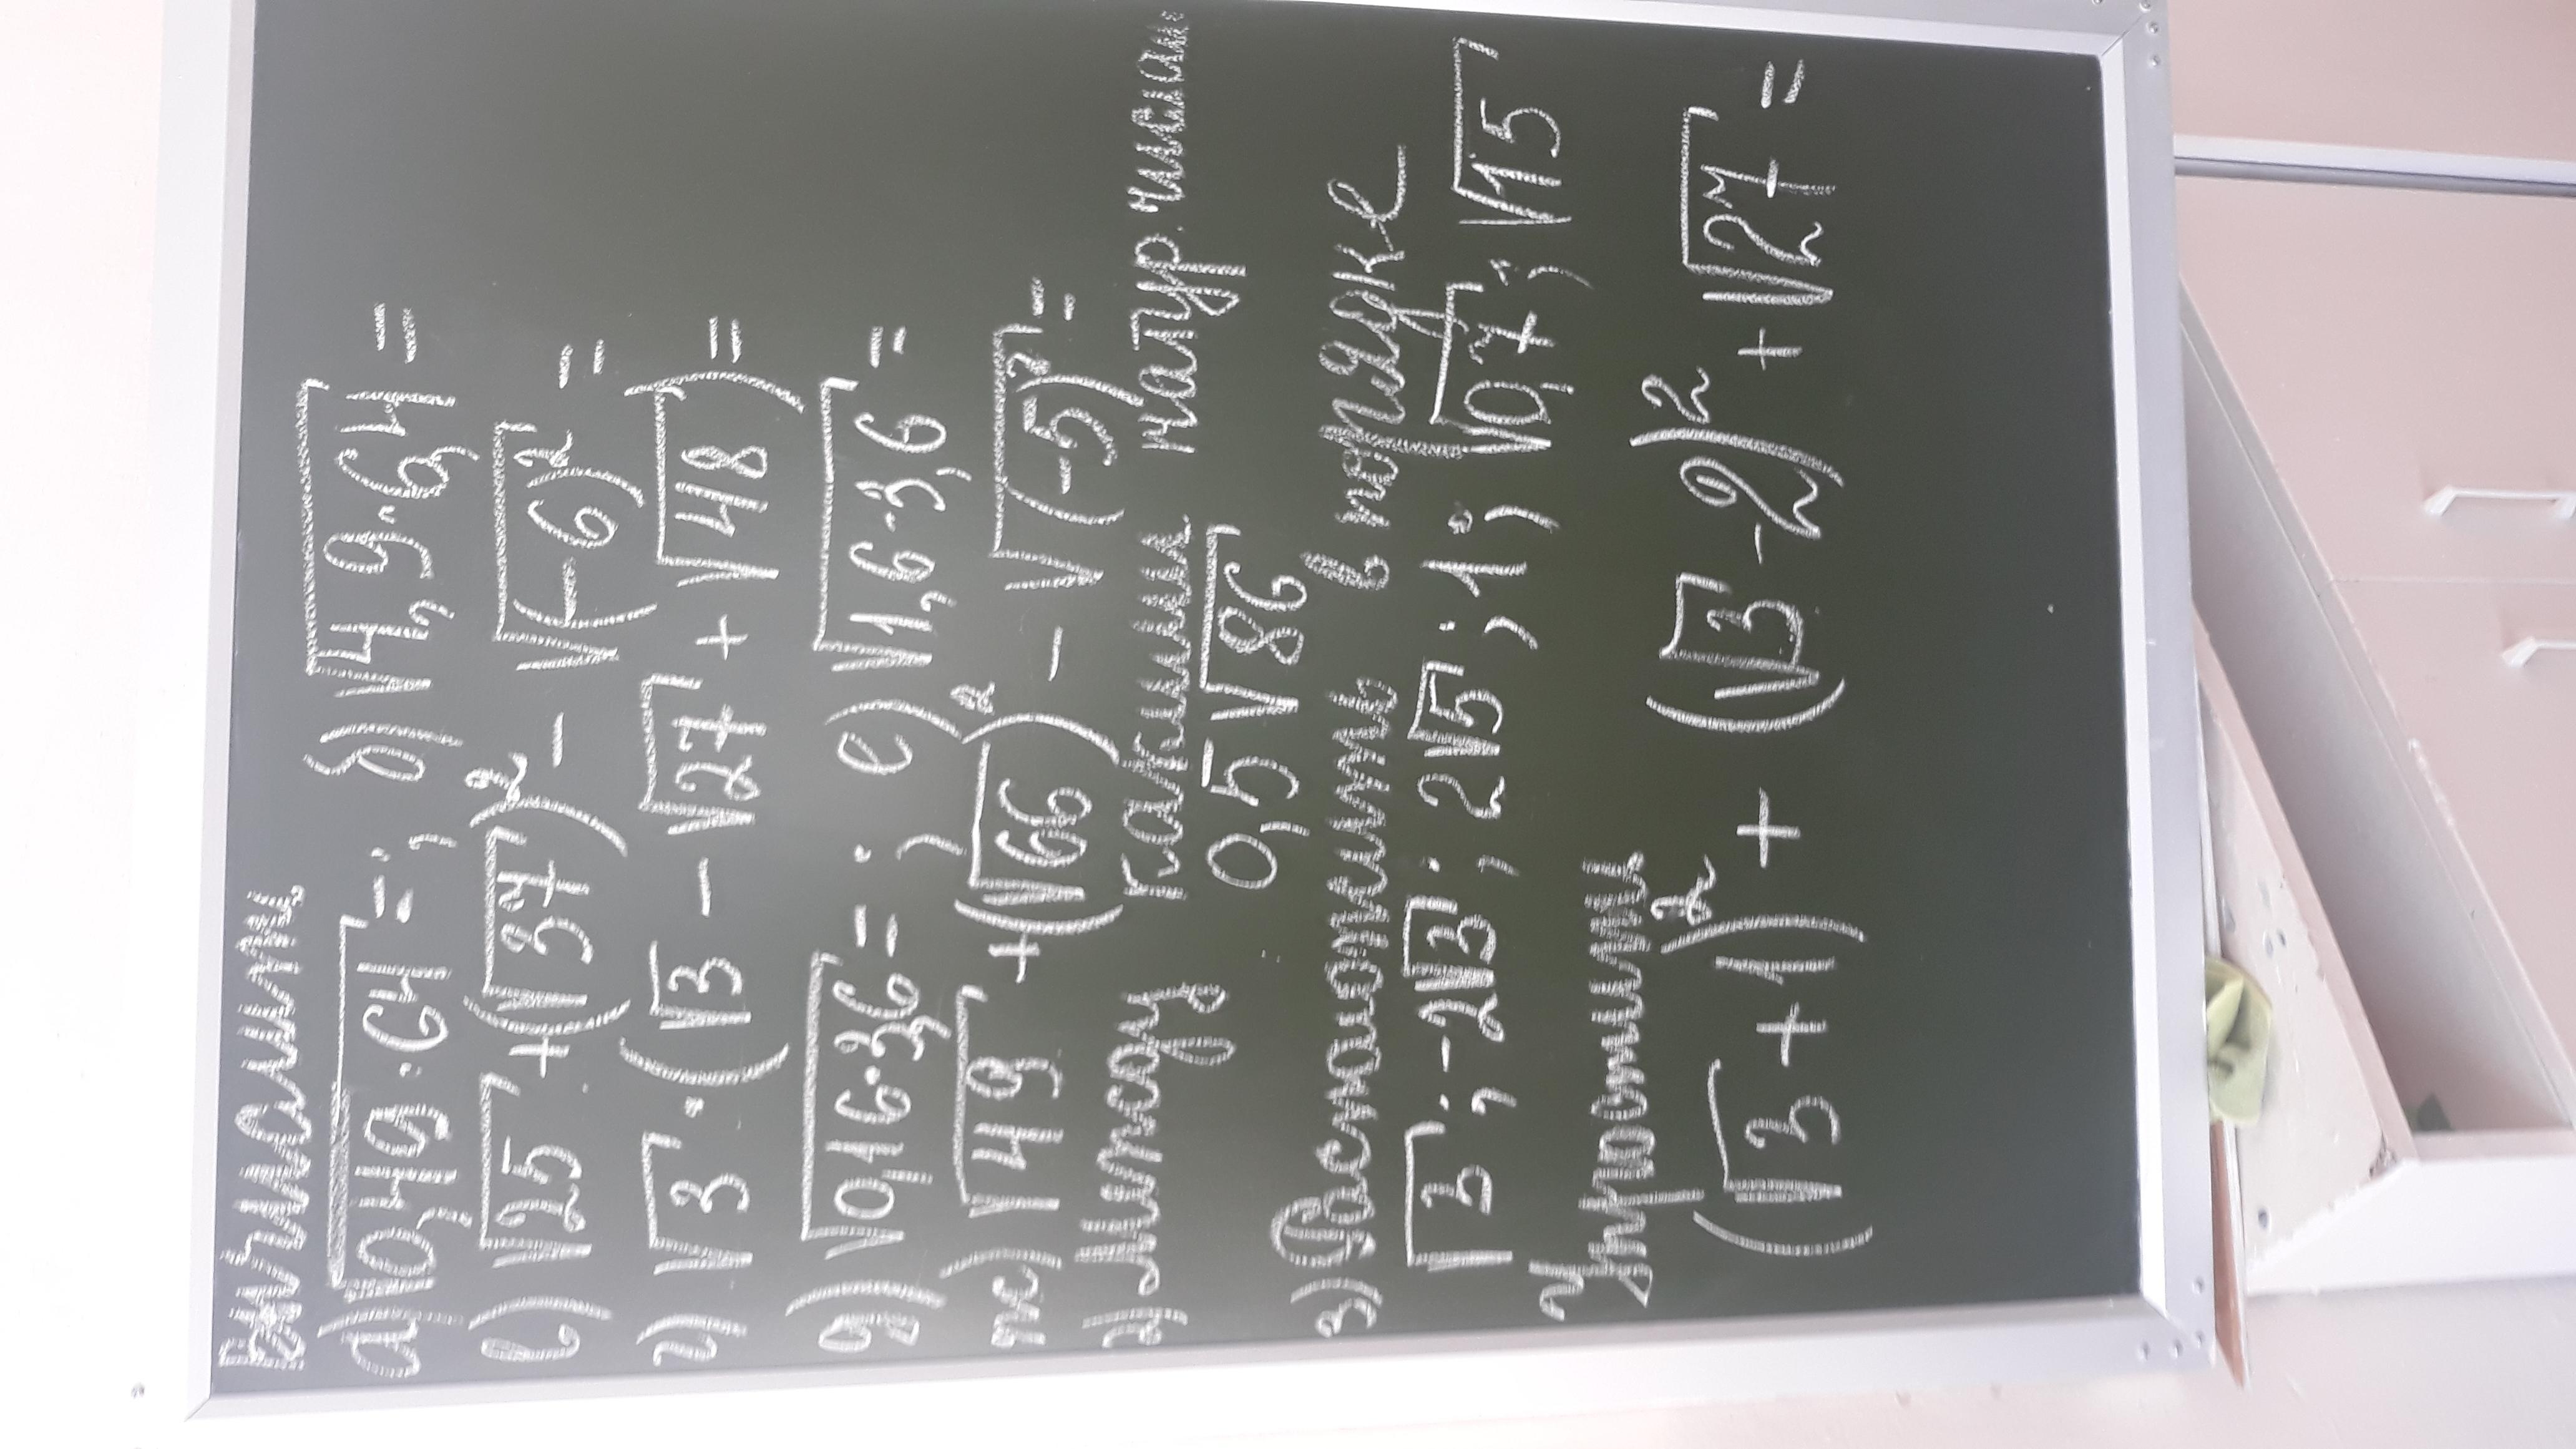 Вычислить
а) √0,49·64 = ; б) √4,9·6,4 =
в) √25 + (√37)² − √(−6)² =
г) √3 · (√3 − √27 + √48) =
д) √0,16·36 = ; е) √1,6·3,6 =
ж) √49 + (√66)² − √(−5)² =
2) Между какими натур. числами
0,5√86
3) Расположить в порядке
√3 ; −2√3 ; 2√5 ; 1 ; √0,7 ; √15
Упростить
(√3 + 1)² + (√3 − 2)² + √27 =